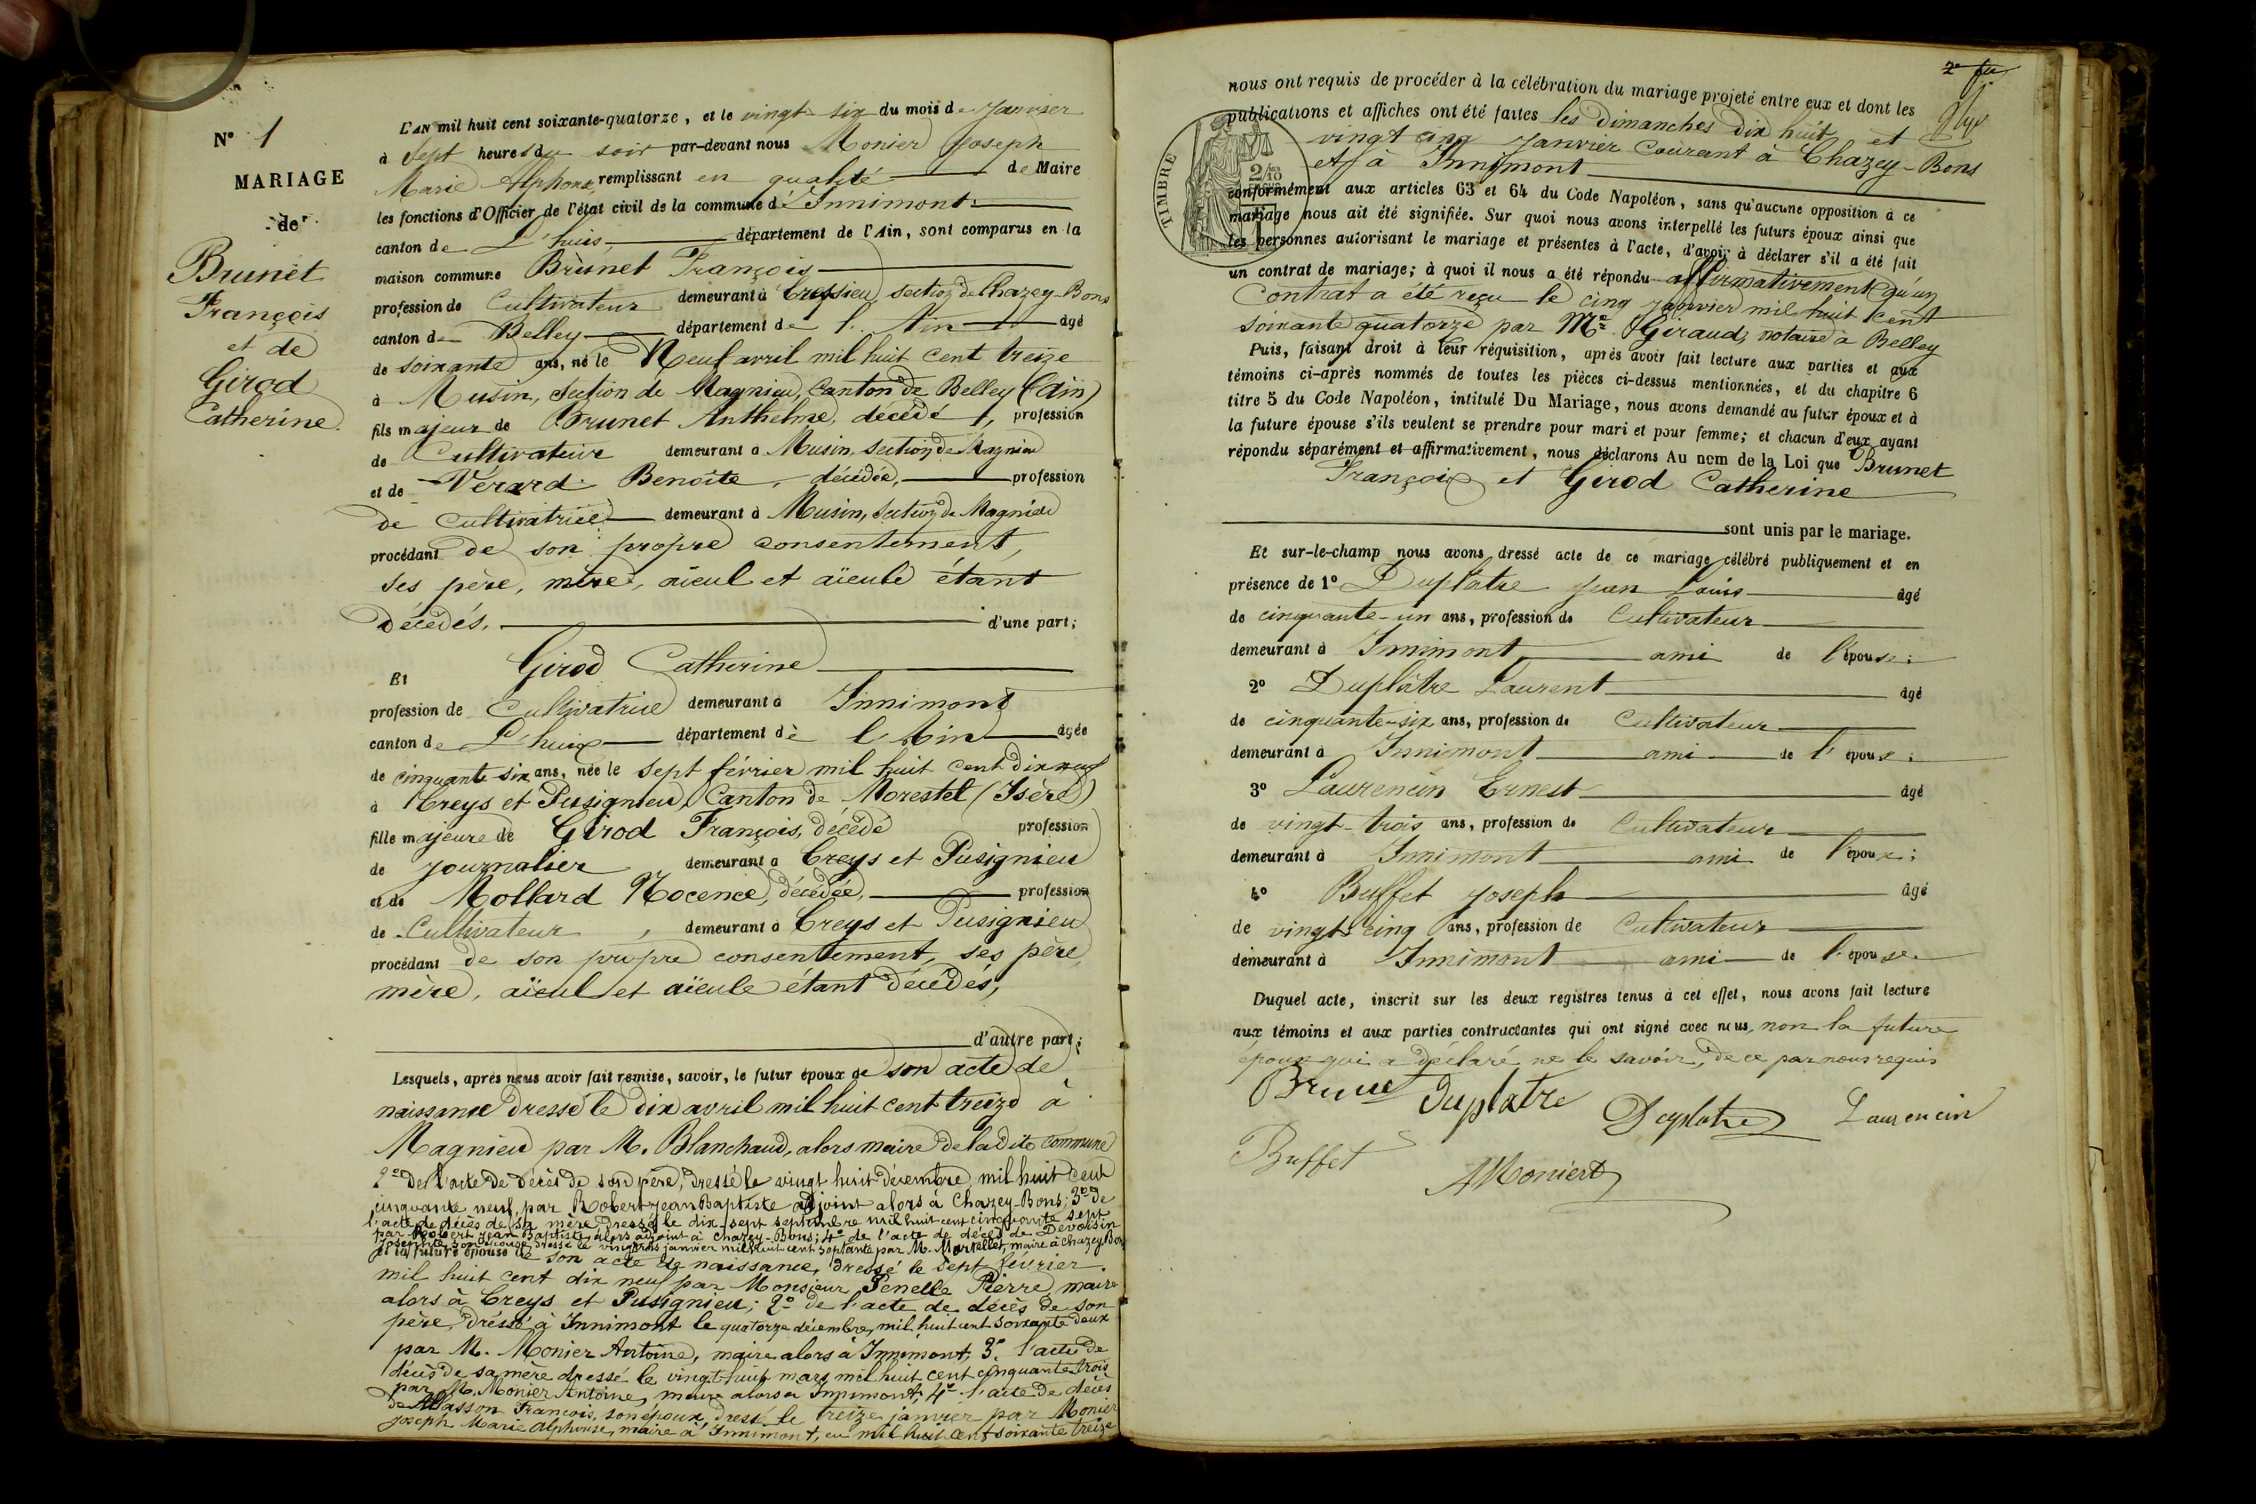 N° 1
MARIAGE
de
Brunet
François
et de
Girod
Catherine.
L'AN mil huit cent soixante-quatorze, et le vingt six du mois de Janvier
à Sept heures du soir par-devant nous Monier Joseph
Marie Alphonse, remplissant en qualité de Maire
les fonctions d'Officier de l'état civil de la commune d'Innimont
canton de L'huis département de l'Ain, sont comparus en la
maison commune Brunet François
profession de Cultivateur demeurant à Cressieu, section de Chazey-Bons
canton de Belley département de l'Ain âgé
de soixante ans, né le Neuf avril mil huit cent treize
à Musin, Section de Magnieu, Canton de Belley (Ain)
fils majeur de Brunet Anthelme, décédé, profession
de Cultivateur demeurant à Musin, Section de Magnieu
et de Vérard Benoîte, décédée, profession
de Cultivatrice demeurant à Musin, Section de Magnieu
procédant de son propre consentement,
ses père, mère, aïeul et aïeule étant
décédés. d'une part;
Et Girod Catherine
profession de Cultivatrice demeurant à Innimont
canton de L'huis département de l'Ain âgée
de cinquante-six ans, née le Sept février mil huit cent dix neuf
à Creys et Pusignieu, Canton de Morestel (Isère)
fille majeure de Girod François, décédé profession
de journalier demeurant à Creys et Pusignieu
et de Mollard Nocence, décédée, profession
de Cultivateur, demeurant à Creys et Pusignieu
procédant de son propre consentement, ses père,
mère, aïeul et aïeule étant décédés,
d'autre part;
Lesquels, après nous avoir fait remise, savoir, le futur époux de son acte de
naissance dressé le dix avril mil huit cent treize à
Magnieu par M. Blanchaud, alors maire de ladite commune
2° De l'acte de décès de son père, dressé le vingt huit décembre mil huit cent
cinquante neuf, par Robert Jean Baptiste adjoint alors à Chazey-Bons; 3° de
l'acte de décès de sa mère dressé le dix-sept septembre mil huit cent cinquante sept
par Robert Jean Baptiste, alors adjoint à Chazey-Bons; 4° de l'acte de décès de Devoisin
Josephte son épouse dressé le vingt trois janvier mil huit cent septante par M. Martellet, maire à Chazey Bons
et la future épouse de son acte de naissance, dressé le sept février
mil huit cent dix neuf par Monsieur Penelle Pierre, maire
alors à Creys et Pusignieu; 2° de l'acte de décès de son
père, dressé à Innimont le quatorze décembre, mil huit cent soixante deux
par M. Monier Antoine, maire alors à Innimont, 3° l'acte de
décès de sa mère dressé le vingt-huit mars mil huit cent cinquante trois
par M. Monier Antoine, maire alors à Innimont, 4° l'acte de décès
de Masson François, son époux, dressé le treize janvier par Monier
Joseph Marie Alphonse, maire à Innimont, en mil huit cent soixante treize
2e
nous ont requis de procéder à la célébration du mariage projeté entre eux et dont les
publications et affiches ont été faites les dimanches dix huit et
vingt cinq Janvier courant à Chazey-Bons
et à Innimont
TIMBRE
2/10
conformément aux articles 63 et 64 du Code Napoléon, sans qu'aucune opposition à ce
mariage nous ait été signifiée. Sur quoi nous avons interpellé les futurs époux ainsi que
les personnes autorisant le mariage et présentes à l'acte, d'avoir à déclarer s'il a été fait
un contrat de mariage; à quoi il nous a été répondu affirmativement qu'un
Contrat a été reçu le cinq janvier mil huit cent
soixante quatorze par Me Giraud, notaire à Belley
Puis, faisant droit à leur réquisition, après avoir fait lecture aux parties et aux
témoins ci-après nommés de toutes les pièces ci-dessus mentionnées, et du chapitre 6
titre 5 du Code Napoléon, intitulé Du Mariage, nous avons demandé au futur époux et à
la future épouse s'ils veulent se prendre pour mari et pour femme; et chacun d'eux ayant
répondu séparément et affirmativement, nous déclarons Au nom de la Loi que Brunet
François et Girod Catherine
sont unis par le mariage.
Et sur-le-champ nous avons dressé acte de ce mariage célébré publiquement et en
présence de 1° Duplatre Jean Louis âgé
de cinquante-un ans, profession de Cultivateur
demeurant à Innimont, ami de l'épouse;
2° Duplâtre Laurent âgé
de cinquante-six ans, profession de Cultivateur
demeurant à Innimont ami de l'époux;
3° Laurencin Ernest âgé
de vingt-trois ans, profession de Cultivateur
demeurant à Innimont ami de l'époux;
4° Buffet Joseph âgé
de vingt-cinq ans, profession de Cultivateur
demeurant à Innimont ami de l'épouse.
Duquel acte, inscrit sur les deux registres tenus à cet effet, nous avons fait lecture
aux témoins et aux parties contractantes qui ont signé avec nous, non la future
épouse qui a déclaré ne le savoir, de ce par nous requis
Brunet Duplatre Duplatre Laurencin
Buffet AMonier